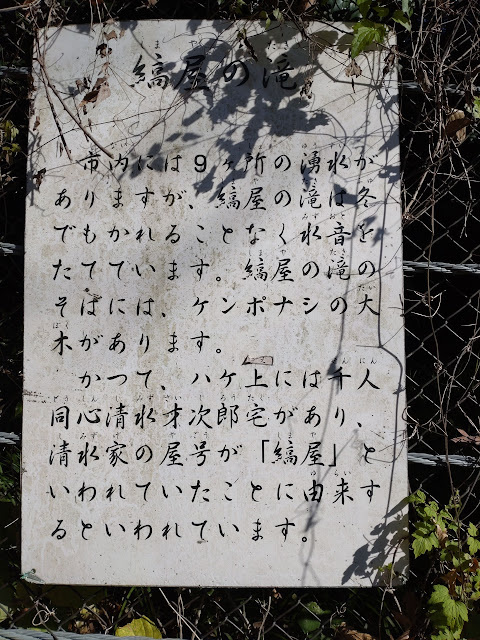 縞屋の滝
市内には9ヶ所の湧水が
ありますが、縞屋の滝は冬
でもかれることなく水音を
たてています。縞屋の滝の
そばには、ケンポナシの大
木があります。
かつて、ハケ上には千人
同心清水才次郎宅があり、
清水家の屋号が「縞屋」と
いわれていたことに由来す
るといわれています。